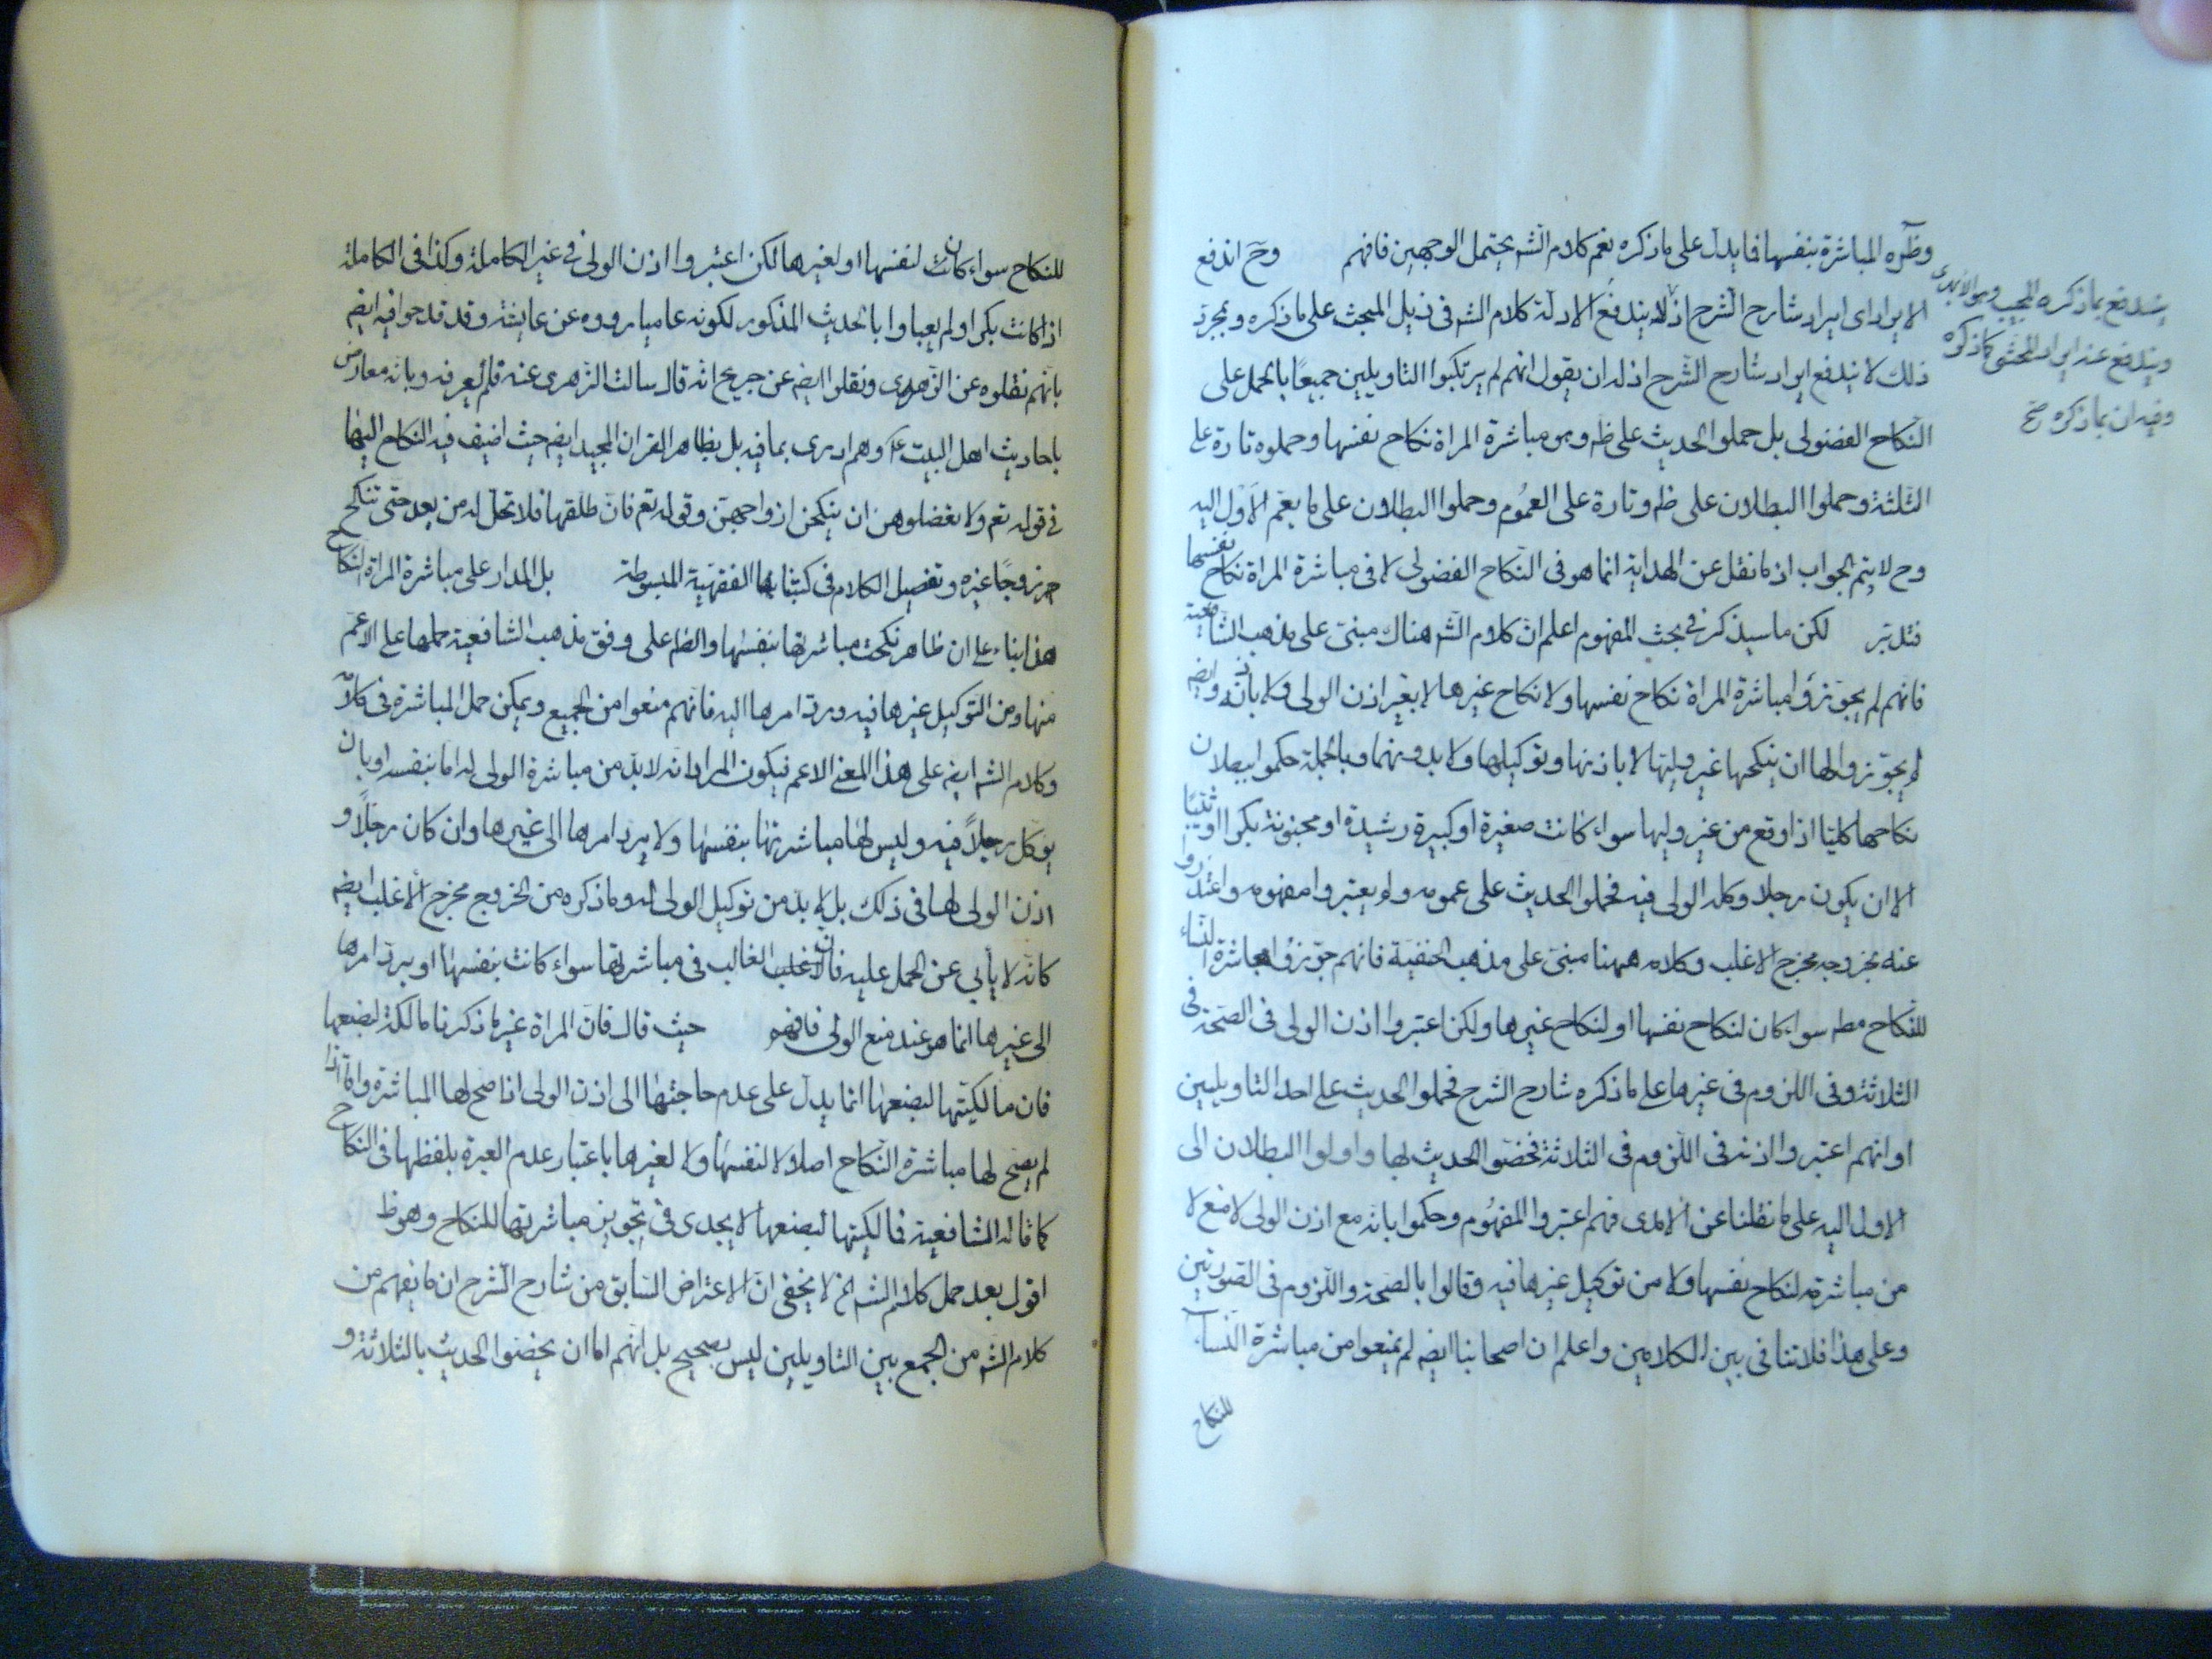 وظره المباشرة بنفسها فما يدل على ما ذكره نعم كلام الشم يحتمل الوجهين فافهم وح اندفع
الايراد اى ايراد شارح الشرح اذ لا يندفع الا دلة كلام الشم فى ذيل المبحث على ما ذكره وبمجرد
ذلك لا يندفع ايراد شارح الشرح اذ له ان يقول انهم لم يرتكبوا التاويلين جميعًا بالحمل على
النكاح الفضولى بل حملوا الحديث على ظه وهو مباشرة المراة نكاح نفسها وحملوه تارة على
الثلثة وحملوا البطلان على ظه وتارة على العموم وحملوا البطلان على ما يعم الأول اليه
وح لا يتم الجواب اذ ما نقل عن الهداية انما هو فى النكاح الفضولى لا فى مباشرة المراة نكاح نفسها
فتدبر لكن ما سيذكر فى بحث المفهوم اعلم ان كلام الشم هناك مبنى على مذهب الشافعية
فانهم لم يجوزوا مباشرة المراة نكاح نفسها ولا نكاح غيرها لا بغير اذن الولى ولا باذنه وايضم
لم يجوزوا لها ان ينكحها غير وليها لا باذنها وتوكيلها ولا بدونهما وبالجملة حكموا ببطلان
نكاحها كليا اذا وقع من غير وليها سواء كانت صغيرة او كبيرة رشيدة او مجنونة بكرا او ثيبًا
الا ان يكون رجلا وكله الولى فيه فحملوا الحديث على عمومه ولم يعتبروا مفهومه واعتذروا
عنه بخروجه مخرج الاغلب وكلامه ههنا مبنى على مذهب الحنفية فانهم جوزوا مباشرة النساء
للنكاح مطم سواء كان لنكاح نفسها او لنكاح غيرها ولكن اعتبروا اذن الولى فى الصحة فى
الثلاثة وفى اللزوم فى غيرها على ما ذكره شارح الشرح فحملوا الحديث على احد التاويلين
او انهم اعتبروا اذنه فى اللزوم فى الثلاثة فخصوا الحديث بها واولوا البطلان الى
الاول اليه على ما نقلنا عن الامدى فهم اعتبروا المفهوم وحكموا بانه مع اذن الولى لا منع لا
من مباشرته لنكاح نفسها ولا من توكيل غيرها فيه وقالوا بالصحة واللزوم فى الصورتين
وعلى هذا فلا تنافى بين الكلامين واعلم ان اصحابنا ايضم لم يمنعوا من مباشرة النساء
للنكاح
يندفع بما ذكره المجيب وهو الابدى
ويندفع عنه ايراد المحشى كما ذكره
وفيه ان بما ذكره صح
للنكاح سواء كان لنفسها او لغيرها لكن اعتبروا اذن الولى فى غير الكاملة وكذا فى الكاملة
اذا كانت بكرا ولم يعباوا بالحديث المذكور لكونه عاميا رووه عن عايشة وقد قدحوا فيه ايضم
بانهم نقلوه عن الزهرى ونقلوا ايضم عن جريح انه قال سالت الزهرى عنه فلم يعرفه وبانه معارض
باحاديث اهل البيت ع وهم ادرى بما فيه بل بظاهر القران المجيد ايضم حيث اضيف فيه النكاح اليها
فى قوله تعم ولا تعضلوهن ان ينكحن ازواجهن وقوله تعم فان طلقها فلا تحل له من بعد حتى تنكح
زوجًا غيره وتفصيل الكلام فى كتبنا الفقهية المبسوطة بل المدار على مباشرة المراة النكاح
هذا بناء على ان ظاهر نكحت مباشرتها بنفسها والظم على وفق مذهب الشافعية حملها على الاعم
منها ومن التوكيل غيرها فيه ورد امرها اليه فانهم منعوا من الجميع ويمكن حمل المباشرة فى كلامه
وكلام الشم ايضم على هذا المعنى الاعم فيكون المراد انه لا بد من مباشرة الولى له اما بنفسه او بان
يوكل رجلاً فيه وليس لها مباشرتها بنفسها ولا يرد امرها الى غيرها وان كان رجلاً و
اذن الولى لها فى ذلك بل لا بد من توكيل الولى له وما ذكره من الخروج مخرج الاغلب ايضم
كانه لا يأبى عن الحمل عليه فان الاغلب الغالب فى مباشرتها سواء كانت بنفسها او برد امرها
الى غيرها انما هو عند منع الولى فافهم حيث قال فان المراة غير ما ذكرنا مالكة لبضعها
فان مالكيتها لبضعها انما يدل على عدم حاجتها الى اذن الولى اذا صح لها المباشرة واما اذا
لم يصح لها مباشرة النكاح اصلا لا لنفسها ولا لغيرها باعتبار عدم العبرة بلفظها فى النكاح
كما قاله الشافعية فمالكيتها لبضعها لا يجدى فى تجويز مباشرتها للنكاح وهو ظ
اقول بعد حمل كلام الشم الخ لا يخفى ان الاعتراض السابق من شارح الشرح ان ما يفهم من
كلام الشم من الجمع بين التاويلين ليس بصحيح بل انهم اما ان يخصوا الحديث بالثلاثة و